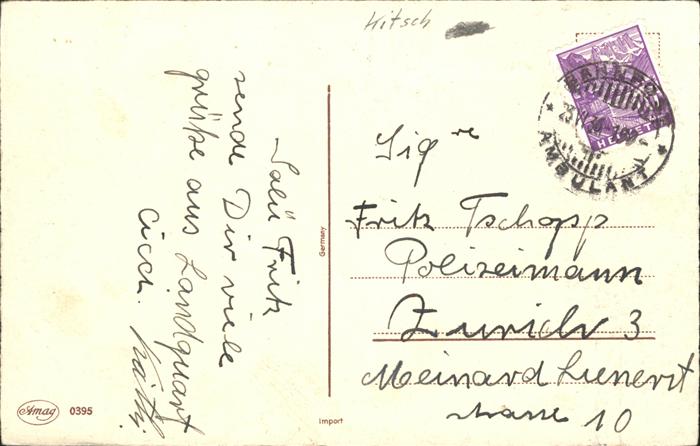 Kitsch
Salü Fritz
sende Dir viele
grüße aus Landquart
BAHNPOST
AMBULANT
HELVETIA
Sig re
Fritz Tschopp
Polizeimann
Zürich 3
Meinard Lienert
strasse 10
Germany
Import
Amag 0395